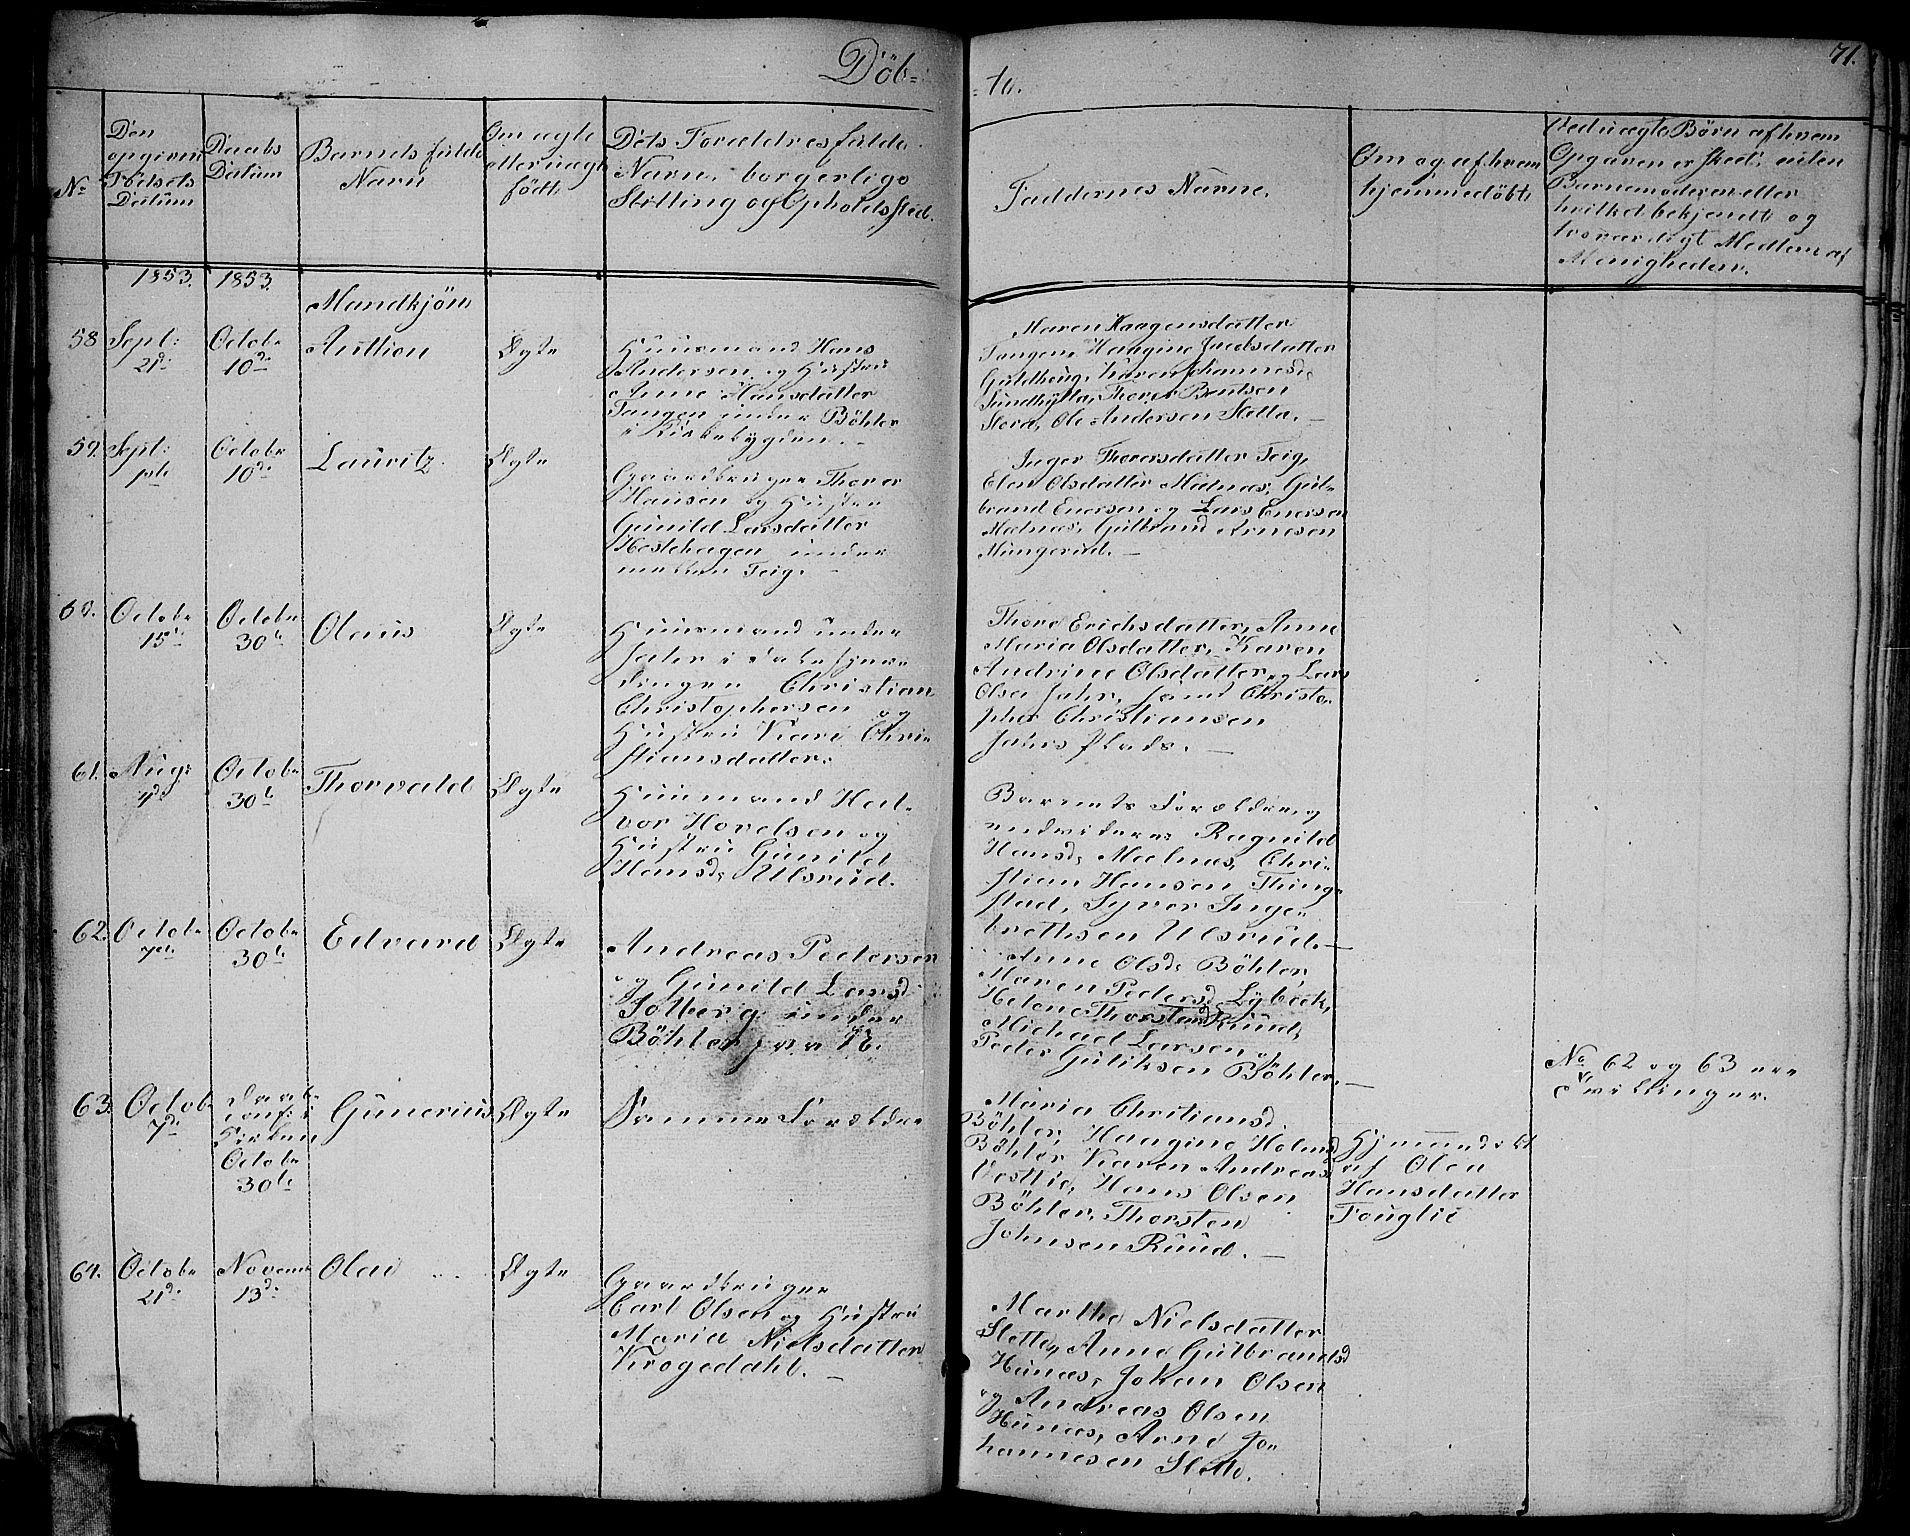 Döb-
-te.
71.
No
Den
opgivne
Fødsels
Datum
Daabs
Datum
Barnets fulde
Navn
Om ægte
eller uægte
født
Dets Forældres fulde
Navne, borgerlige
Stilling og Opholdssted.
Faddernes Navne.
Om og af hvem
hjemmedøbt
Ved uægte Børn af hvem
Opgaven er skeet; uden
Barnemoderen eller
hvilket bekjendt og
troværdigt Medlem af
Menigheden.
1853. 1853.
Mandkjön
58 Sept: 21de Octobr 10de Anttion Ægte
Huusmand Hans
Andersen og Hustru
Anne Hansdatter
Tangen under Böhler
i Kirkebygden.
Maren Haagensdatter
Tangen, Haagine Jacobsdatter
Guldhaug, Karen Johannesd.
Sundhytta, Thorer Bentsen
Stora, Ole Andersen Sletta. —
59. Sept: Octobr 10de Lauritz Ægte
Gaardbruger Thorer
Hansen og Hustru
Gunild Larsdatter
Hestehagen under
mellem Teig.
Inger Thorersdatter Teig,
Elen Olsdatter Mælnæs, Gul-
brand Enersen og Lars Enersen
Mælnæs, Gulbrand Arnesen
Mungerud. —
60. Octobr 15de Octobr 30te Olaus Ægte
Huusmand under
Jahr i
dingen Christian
Christophersen og
Hustru Kari Chri-
stiansdatter.
Thore Erichsdatter, Anne
Maria Olsdatter, Karen
Andrine Olsdatter og Lars
Olsen Jahr, samt Christo-
pher Christiansen
Jahrs Plads. —
61. Aug: 4de Octobr 30te Thorvald Ægte
Huusmand Hal-
vor Hovelsen og
Hustru Gunild
Hansd. Ulsrud.
Barnets Forældre og
endvidere Ragnild
Hansd. Mælnæs, Chri-
stian Hansen Thing-
stad, Syver Inge-
brethsen Ulsrud. —
62. Octobr 7de Octobr 30te Edvard Ægte
Andreas Pedersen
og Gunild Larsd.
Solberg under
Böhler
Anne Olsd. Böhler,
Maren Pedersd. Lybeck,
Helene Thorstensd. Ruud,
Michael Larsen og
Peder Guliksen Böhler. —
No 62 og 63 ere
Tvillinger.
63. Octob. 7de Daabs
conf: i
Kirken
Octobr
30te Gunerius Ægte
Samme Forældre
Maria Chritiansd.
Böhler, Haagine Holmsd.
Böhler, Karen Andreasd.
Vestlie, Hans Olsen
Böhler, Thorsten
Johnsen Ruud. —
Hjemmedöbt
af Olea
Hansdatter
Fouglie
64. Octobr 21de Novemb. 13de Olai Ægte
Gaardbruger
Carl Olsen og Hustru
Maria Nielsdatter
Krogedahl. —
Marthe Nielsdatter
Slette, Anne Gulbrandsd.
Hunæs, Johan Olsen
og Andreas Olsen
Hunæs, Arne Jo-
hannesen Slette.